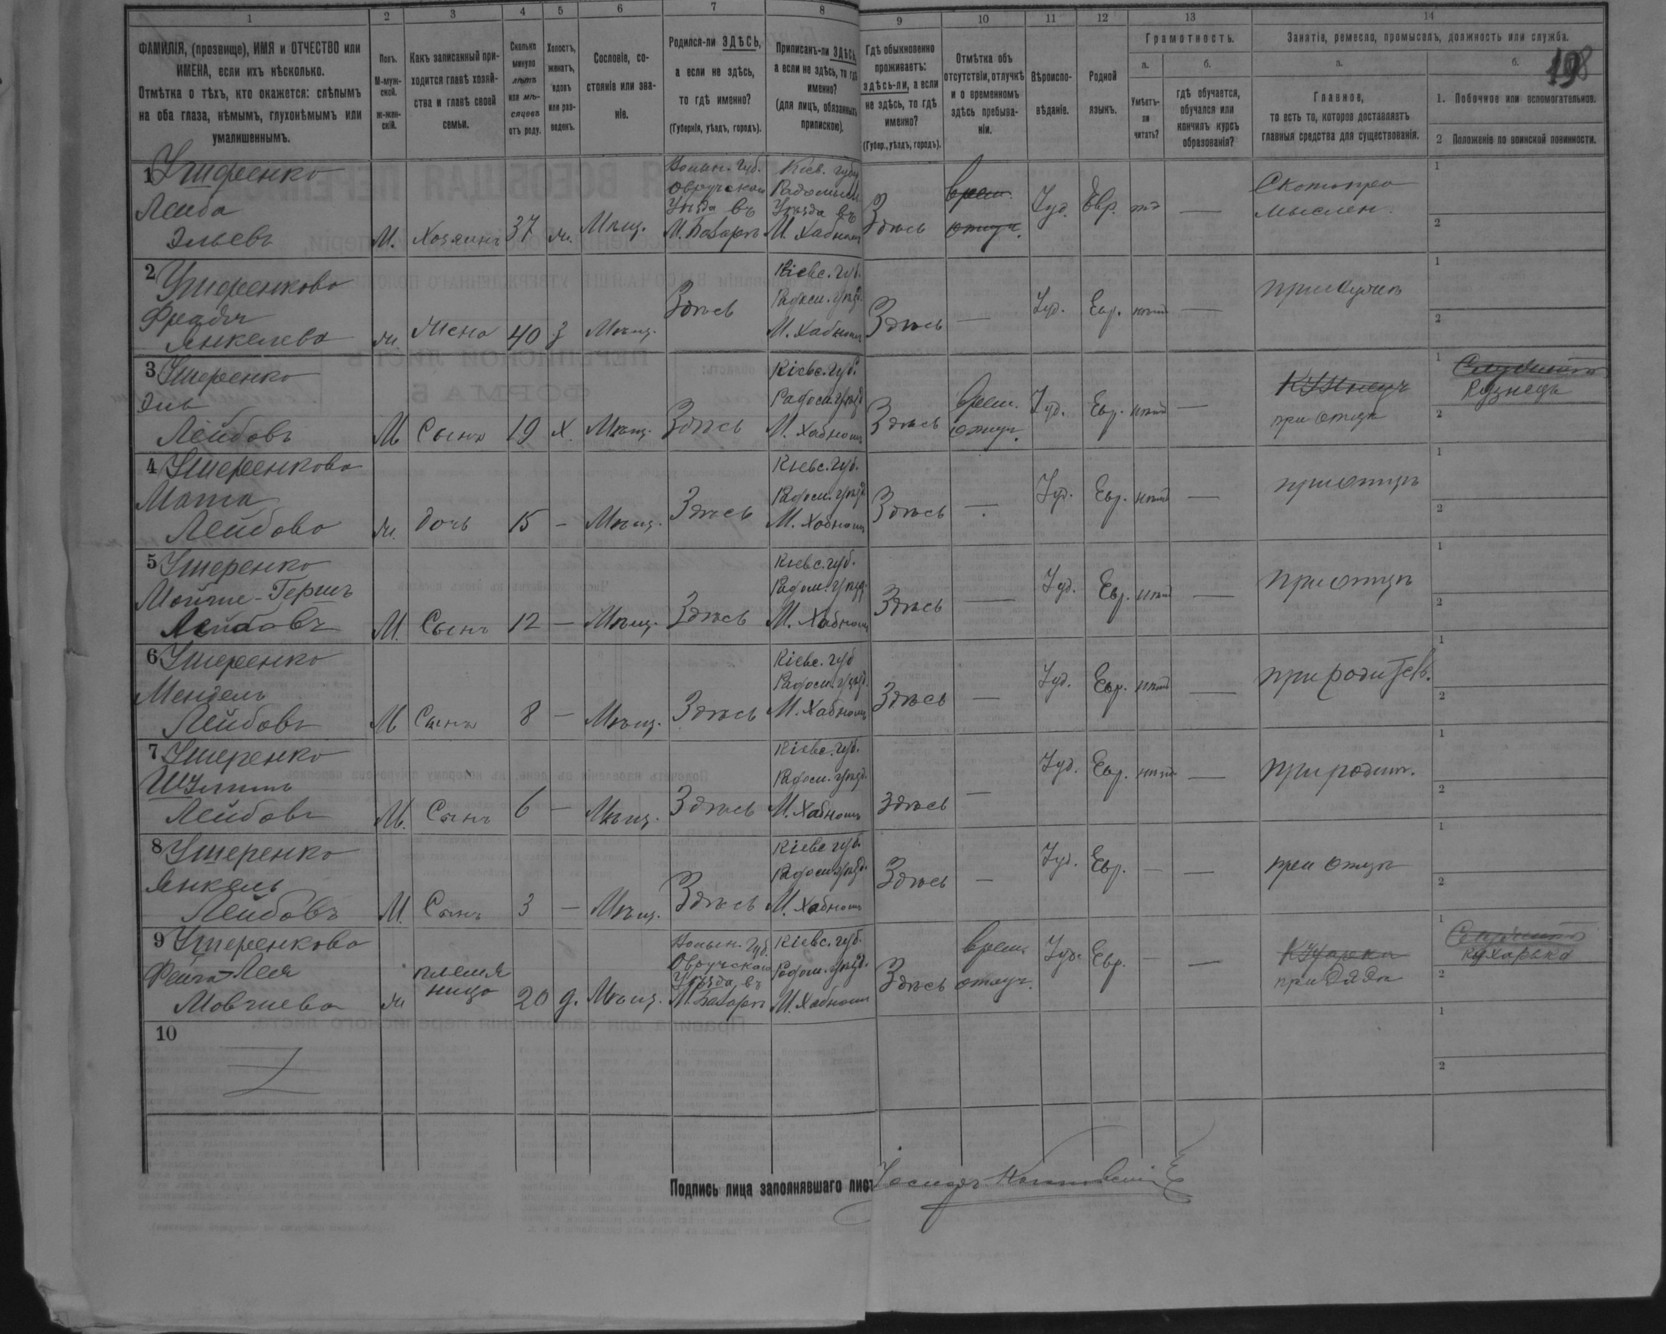 1 2 3 4 5 6 7 8 9 10 11 12 13 14
ФАМИЛІЯ, (прозвище), ИМЯ и ОТЧЕСТВО или
ИМЕНА, если ихъ нѣсколько.
Отмѣтка о тѣхъ, кто окажется: слѣпымъ
на оба глаза, нѣмымъ, глухонѣмымъ или
умалишеннымъ.
Полъ.
М-муж-
ской.
ж-жен-
скій.
Какъ записанный при-
ходится главѣ хозяй-
ства и главѣ своей
семьи.
Сколько
минуло
лѣтъ
или мѣ-
сяцевъ
отъ роду.
Холостъ,
женатъ,
вдовъ
или раз-
веденъ.
Сословіе, со-
стояніе или зва-
ніе.
Родился-ли ЗДѢСЬ,
а если не здѣсь,
то гдѣ именно?
(Губернія, уѣздъ, городъ).
Приписанъ-ли ЗДѢСЬ,
а если не здѣсь, то гдѣ
именно?
(для лицъ, обязанныхъ
припискою).
Гдѣ обыкновенно
проживаетъ:
здѣсь-ли, а если
не здѣсь, то гдѣ
именно?
(Губер., уѣздъ, городъ).
Отмѣтка объ
отсутствіи, отлучкѣ
и о временномъ
здѣсь пребыва-
ніи.
Вѣроиспо-
вѣданіе.
Родной
языкъ.
Грамотность.
а.
Умѣетъ-
ли
читать?
б.
гдѣ обучается,
обучался или
кончилъ курсъ
образованія?
Занятіе, ремесло, промыселъ, должность или служба.
198
а.
Главное,
то есть то, которое доставляетъ
главныя средства для существованія.
б.
1. Побочное или вспомогательное.
2 Положеніе по воинской повинности.
1 Ушеренко
Лейба
Эльевъ
М. Хозяинъ 37 ж. Мѣщ.
Волын. Губ.
Овручскаго
Уѣзда въ
М. Базарѣ
Кіев. Губ.
Радомысл.
Уѣзда въ
М. Хабномъ
Здѣсь
врем.
отлуч.
Іуд. Евр. — Скотопро
мыслен.
1
2
2 Ушеренкова
Фрадя
Янкелева
ж. Жена 40 з Мѣщ.
Здѣсь
Кіевс. губ.
Радом. уѣзд.
М. Хабномъ
Здѣсь — Іуд. Евр. — при мужѣ
1
2
3 Ушеренко
Эль
Лейбовъ
М. Сынъ 19 х. Мѣщ.
Здѣсь
Кіевс. губ.
Радом. уѣзд.
М. Хабномъ
Здѣсь
врем.
отлуч.
Іуд. Евр. —
при отцѣ
1
Кузнецъ
2
4 Ушеренкова
Мата
Лейбова
ж. дочь 15 — Мѣщ.
Здѣсь
Кіевс. губ.
Радом. уѣзд.
М. Хабномъ
Здѣсь — Іуд. Евр. — при отцѣ
1
2
5 Ушеренко
Мойше-Гершъ
Лейбовъ
М. Сынъ 12 — Мѣщ.
Здѣсь
Кіевс. губ.
Радом. уѣзд.
М. Хабномъ
Здѣсь — Іуд. Евр. — При отцѣ
1
2
6 Ушеренко
Мендель
Лейбовъ
М Сынъ 8 — Мѣщ.
Здѣсь
Кіевс. губ
Радом. уѣзд.
М. Хабномъ
Здѣсь — Іуд. Евр. — при родител.
1
2
7 Ушеренко
Лейбовъ
М. Сынъ 6 — Мѣщ.
Здѣсь
Кіевс. губ.
Радом. уѣзд.
М. Хабномъ
Здѣсь — Іуд. Евр. — при родит.
1
2
8 Ушеренко
Янкель
Лейбовъ
М. Сынъ 3 — Мѣщ.
Здѣсь
Кіевс губ.
Радом. уѣзд.
М. Хабномъ
Здѣсь — Іуд. Евр. — — при отцѣ
1
2
9 Ушеренкова
Фейга-Лея
Мовшева
ж племя
ница 20 д. Мѣщ.
Волын. Губ.
Овручскаго
Уѣзда въ
М. Базарѣ
Кіевс. губ.
Радом. уѣзд.
М. Хабномъ
Здѣсь
врем.
отлуч.
Іуд. Евр. — —
Кухарка
при дядѣ
1
Кухарка
2
10
1
2
Подпись лица заполнявшаго лист